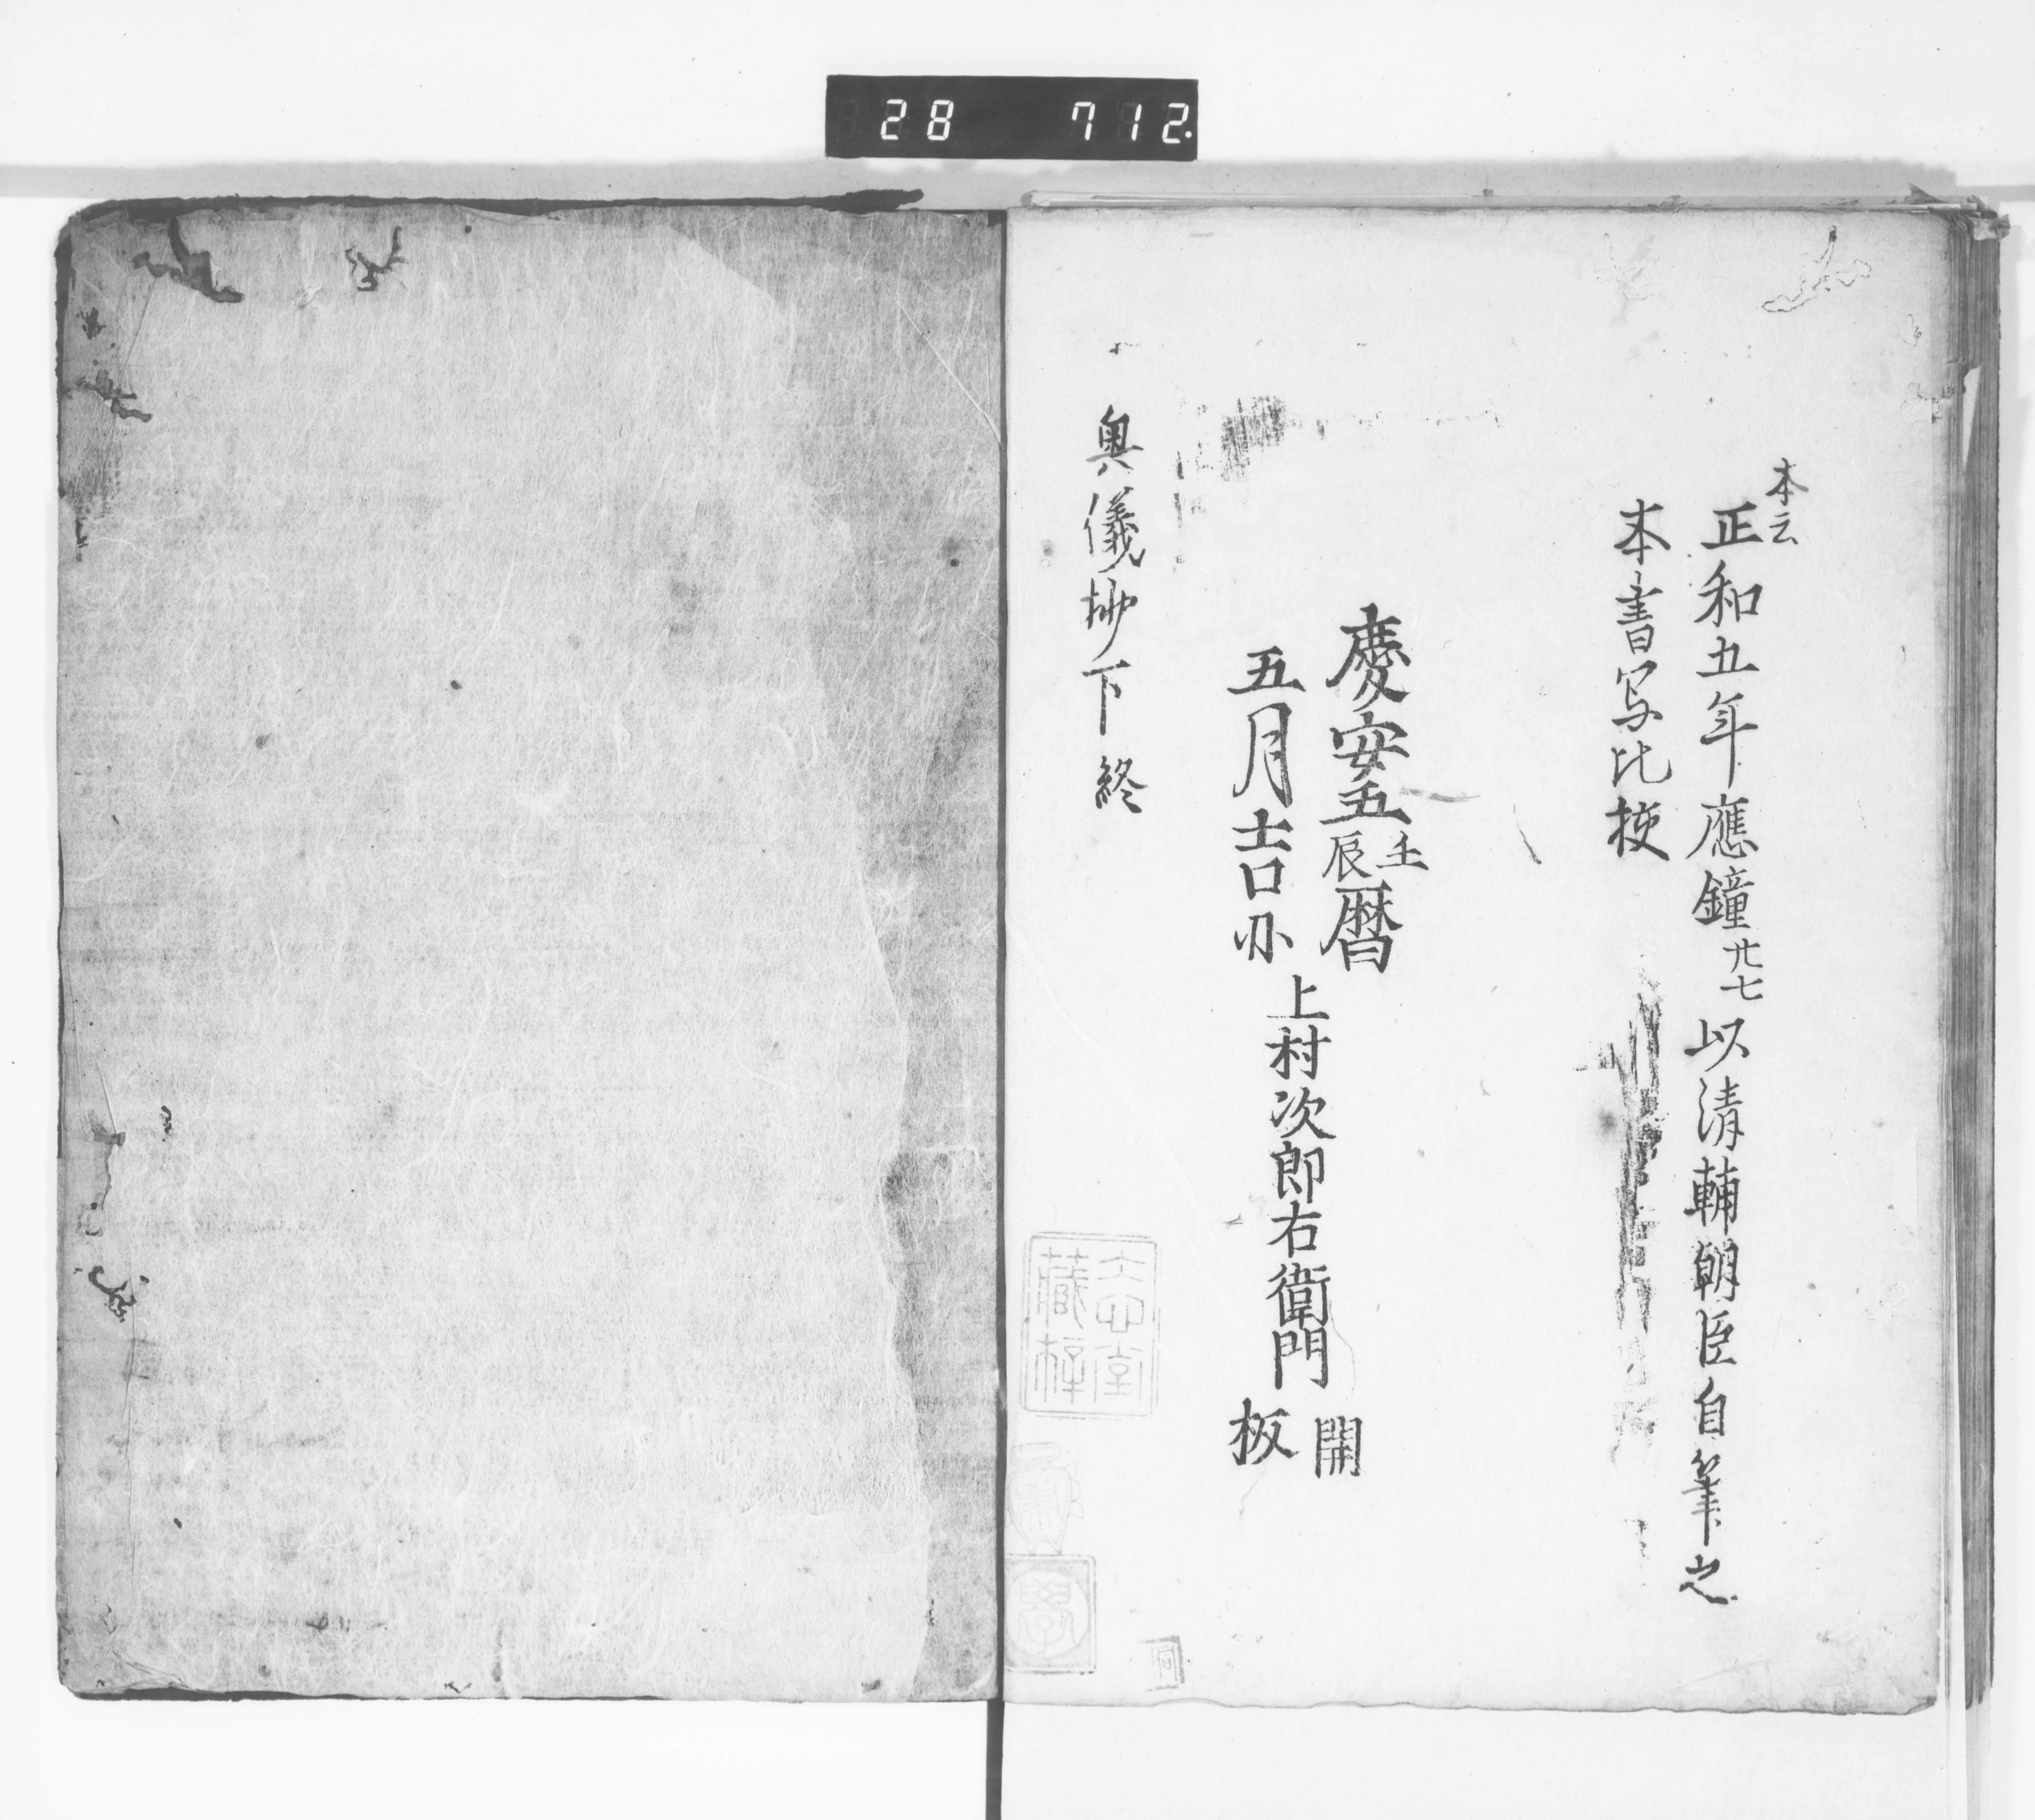 28 712
本云
正和五年應鐘廿七以清輔朝臣自筆之
本書写比挍
慶安五壬辰曆
五月吉日
上村次郎右衛門
開
板
奥儀抄下終
藏梓